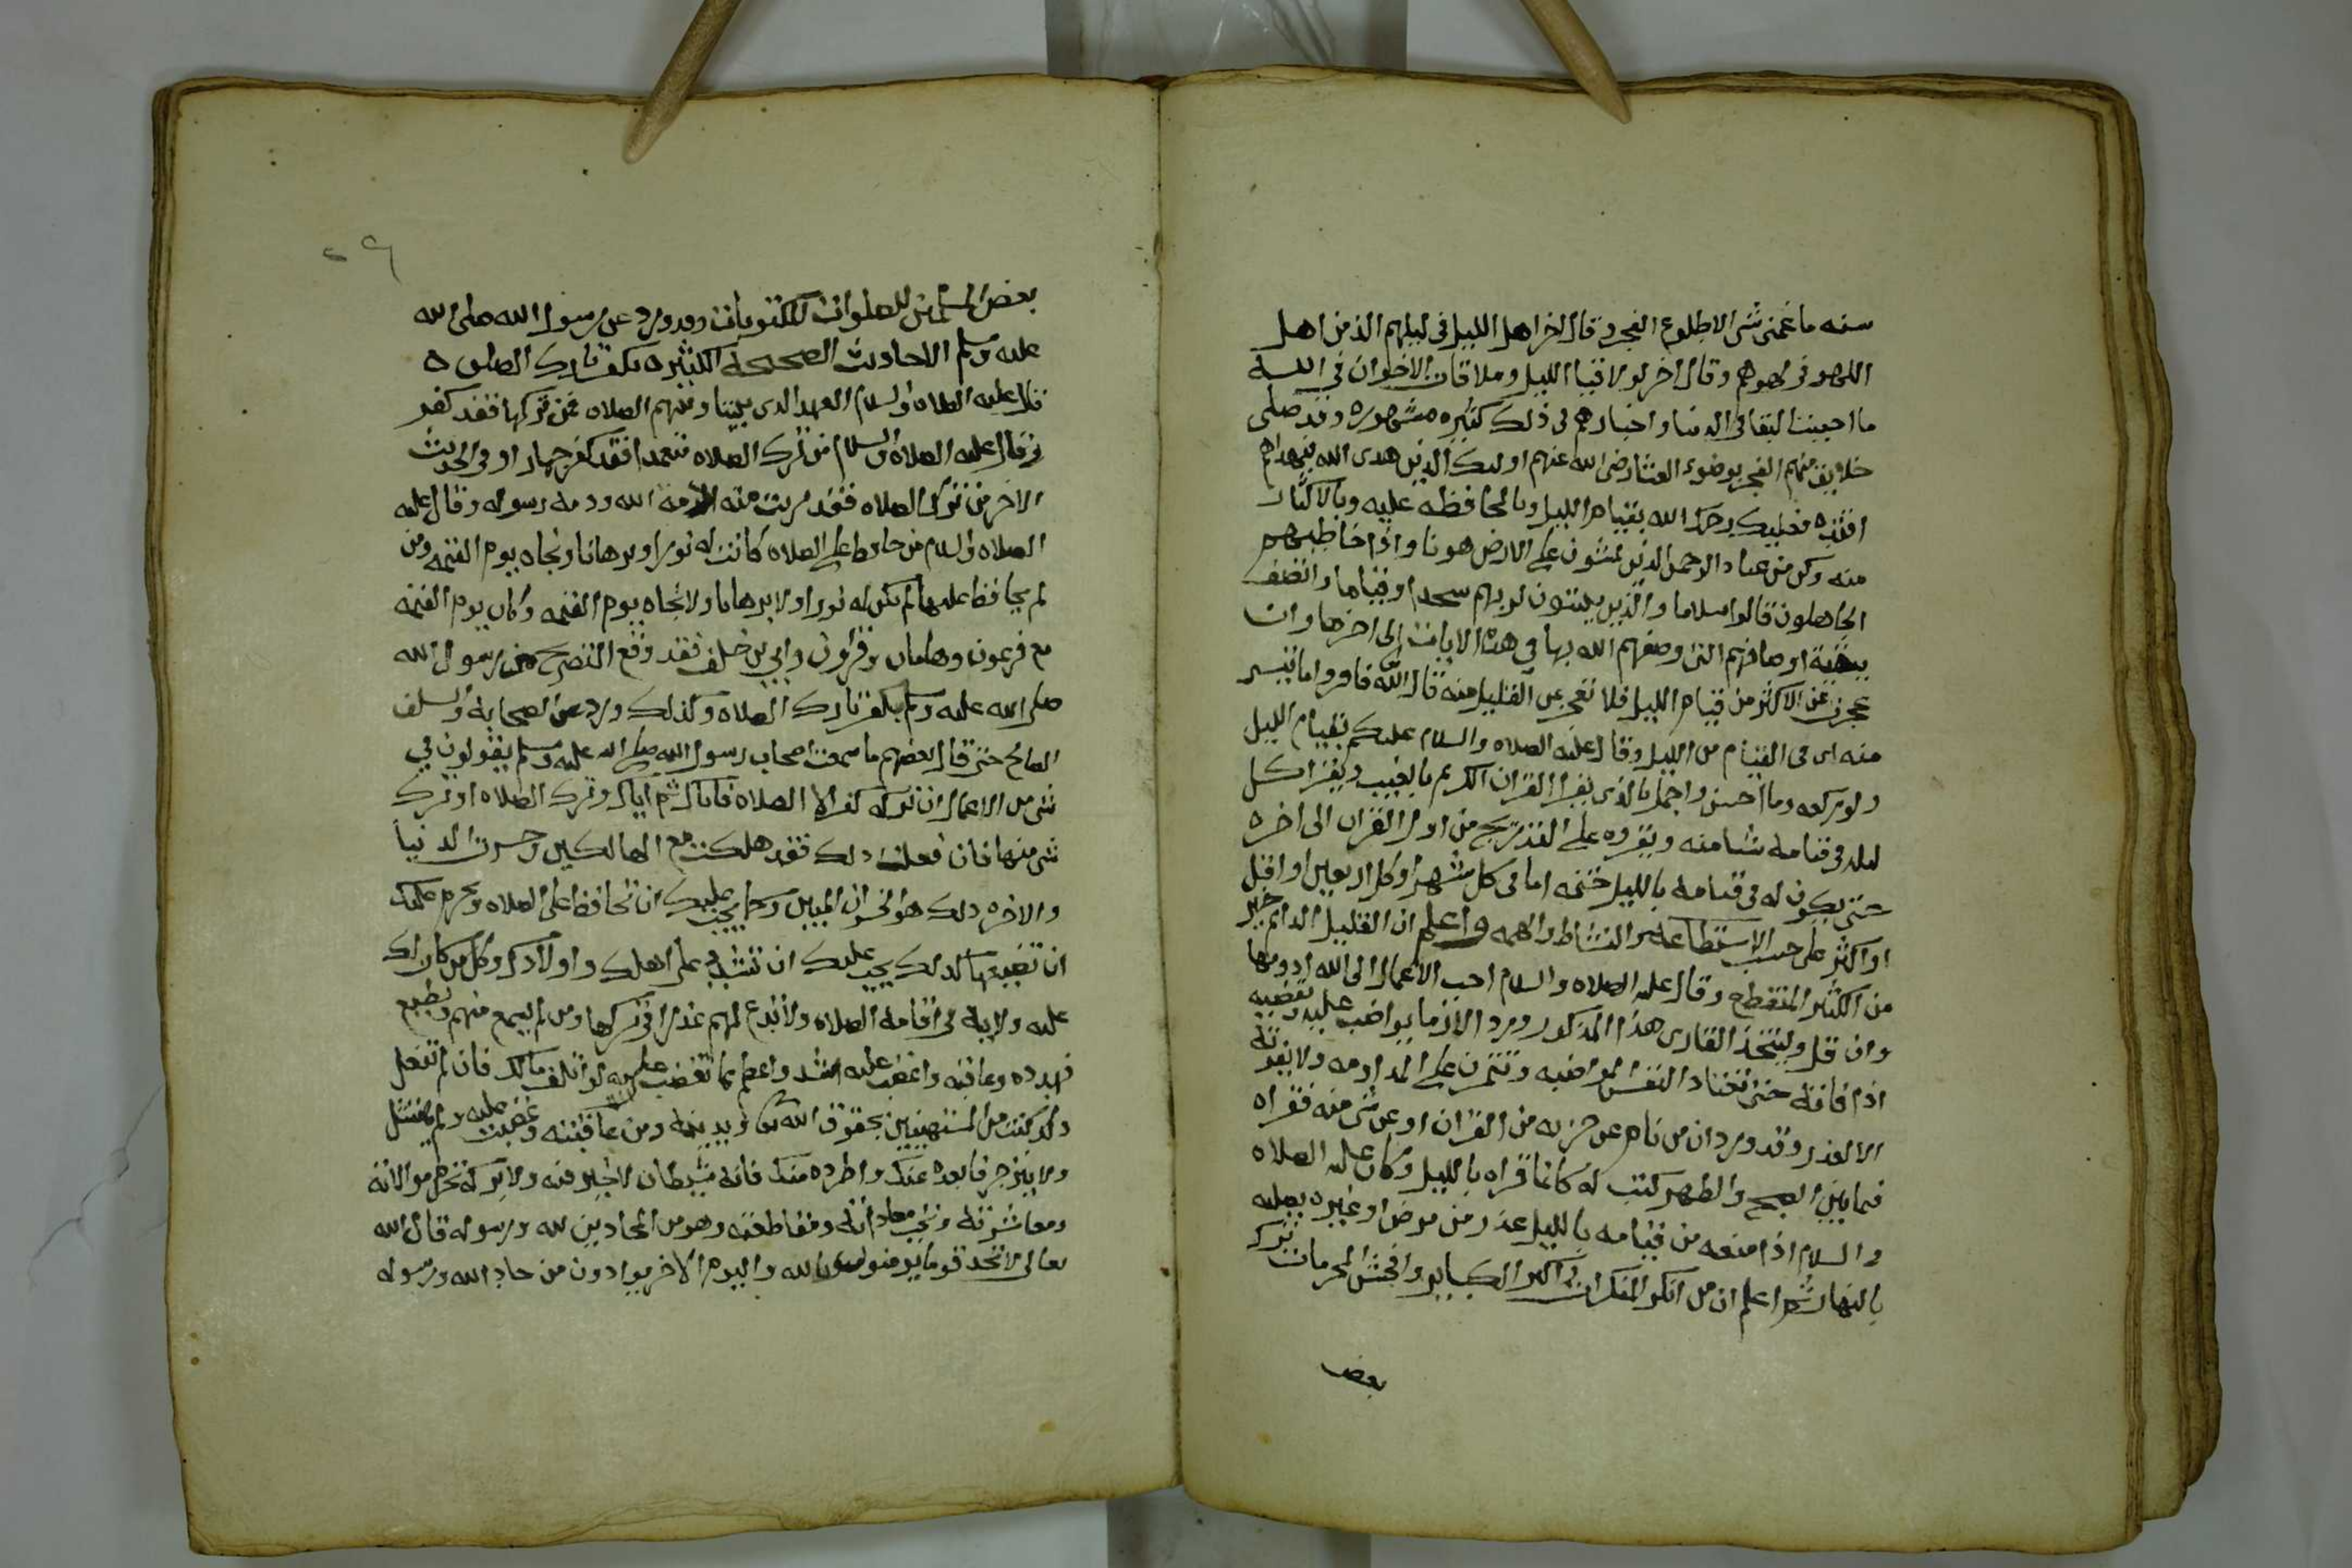 سنه ما غمنى شى الا طلوع الفجر وقال اخر اهل الليل فى ليلهم الذ من اهل
اللهو فى لهوهم وقال اخر لولا قيام الليل وملاقات الاخوان فى الله
ما احببت البقا فى الدنيا واخبارهم فى ذلك كثيره مشهوره وقد صلى
خلايق منهم الفجر بوضوء العشا رضى الله عنهم اوليك الذين هدى الله فبهداهم
اقتده فعليك رحمك الله بقيام الليل وبالمحافظه عليه وبالاكثار
منه وكن من عباد الرحمن الذين يمشون على الارض هونا واذا خاطبهم
الجاهلون قالوا سلاما والذين يبيتون لربهم سجدا وقياما واتصف
ببقية اوصافهم التى وصفهم الله بها في هذه الايات الى اخرها وان
عجزت عن الاكثر من قيام الليل فلا تعجز عن القليل منه قال الله تعالى فاقروا ما تيسر
منه اى فى القيام من الليل وقال عليه الصلاه والسلام عليكم بقيام الليل
ولو ركعه وما احسن واجمل بالذى يقرا القران الكريم بالغيب ويقرا كل
ليله فى قيامه شيا منه ويقروه على التدريج من اول القران الى اخره
حتى يكون له فى قيامه بالليل ختمه اما فى كل شهر او كل اربعين او اقل
او اكثر على حسب الاستطاعه والنشاط والهمه واعلم ان القليل الدايم خير
من الكثير المنقطع وقال عليه الصلاه والسلام احب الاعمال الى الله ادومها
وان قل وليتخذ القارى هذا المذكور ورد الازما يواضب عليه ويقضيه
اذا فاته حتى تعتاد النفس المواضبه وتتمرن على المداومه ولا يفوته
الا لعذر وقد ورد ان من نام عن حزبه من القران او عن شى منه فقراه
فيما بين الصبح والظهر كتب له كانما قراه بالليل وكان عليه الصلاه
والسلام اذا منعه من قيامه بالليل عذر من مرض او غيره يصليه
بالنهار ثم اعلم ان من انكر المنكرات واكبر الكباير وافحش المحرمات ترك
بعض
٢٩
بعض المسلمين للصلوات المكتوبات وقد ورد عن رسول الله صلى الله
عليه وسلم الاحاديث الصحيحة الكثيره بكفر تارك الصلوه
قال عليه الصلاه والسلام العهد الذى بيننا وبينهم الصلاه فمن تركها فقد كفر
وقال عليه الصلاه والسلام من ترك الصلاه متعمدا فقد كفر جهارا وفى الحديث
الاخر من ترك الصلاه فقد بريت منه ذمة الله وذمة رسوله وقال عليه
الصلاه والسلام من حافظ على الصلاه كانت له نورا وبرهانا ونجاه يوم القيمه ومن
لم يحافظ عليها لم يكن له نورا ولا برهانا ولا نجاه يوم القيمه وكان يوم القيمه
مع فرعون وهامان وقارون وابي بن خلف فقد وقع التصريح من رسول الله
صلى الله عليه وسلم بكفر تارك الصلاه وكذلك ورد عن الصحابه والسلف
الصالح حتى قال بعضهم ما سمعت اصحاب رسول الله صلى الله عليه وسلم يقولون في
شى من الاعمال ان تركه كفر الا الصلاه فاياك ثم اياك وترك الصلاه او ترك
شى منها فان فعلت ذلك فقد هلكت مع الهالكين وخسرت الدنيا
والاخره ذلك هو الخسران المبين وكما يجب عليك ان تحافظ على الصلاه ويحرم عليك
ان تضيعها كذلك يجب عليك ان تشدد على اهلك واولادك وكل من كان لك
عليه ولايه فى اقامة الصلاه ولا تدع لهم عذرا فى تركها ومن لم يسمع منهم ويطيع
فهدده وعاقبه واغضب عليه اشد واعظم مما تغضب عليه لو اتلف مالك فان لم تفعل
ذلك كنت من المستهينين بحقوق الله تعالى وبدينه ومن عاقبته وغضبت عليه ولم يمتثل
ولا ينزجر فابعده عنك واطرده منك فانه شيطان لا خير فيه ولا بركه تحرم موالاته
ومعاشرته وتجب معاداته ومقاطعته وهو من المحادين لله ورسوله قال الله
تعالى لا تجد قوما يومنون بالله واليوم الاخر يوادون من حاد الله ورسوله